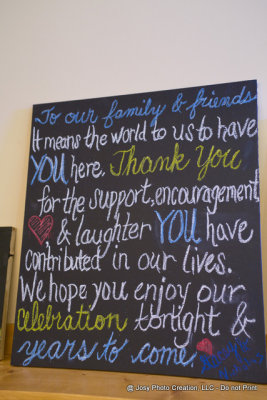 To our family & friends
It means the world to us to have
YOU here. Thank You
for the support, encouragement,
& laughter YOU have
contributed in our lives.
We hope you enjoy our
Celebration tonight &
years to come.
@ Josy Photo Creation, LLC - Do not Print